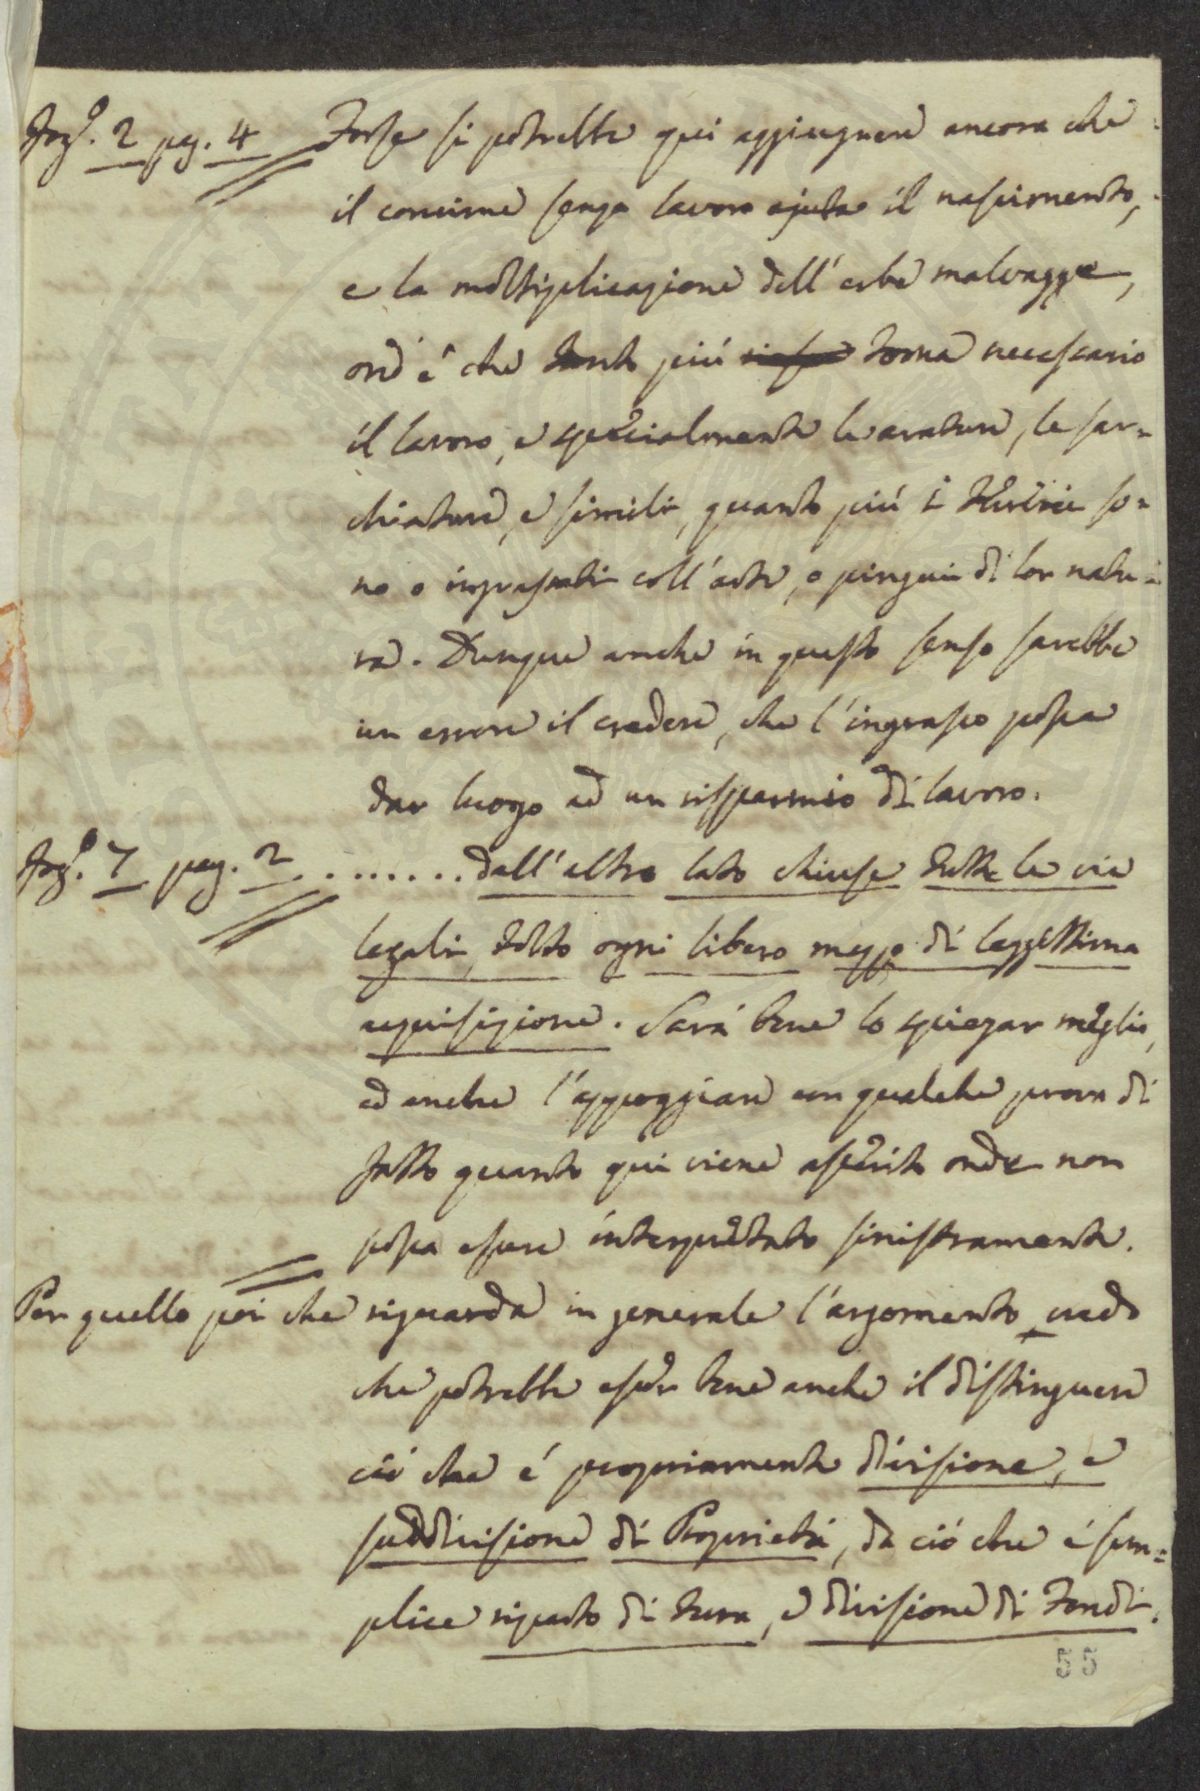 Fog.º 2 pag. 4 Forse si potrebbe qui aggiugnere ancora che
il concime senza lavoro ajuta il nascimento,
e la moltiplicazione dell'erbe malvagge,
ond'è che tanto più torna necessario
il lavoro, e specialmente le arature, le sar=
chiature, e simili, quanto più i terreni so=
no o ingrassati coll'arte, o pingui di lor natu=
ra. Dunque anche in questo senso sarebbe
un errore il credere, che l'ingrasso possa
dar luogo ad un risparmio di lavoro.
Fog.º 7 pag. 2 ........ dall'altro lato chiuse tutte le vie
legali, tolto ogni libero mezzo di leggittima
acquisizione. Sarà bene lo spiegar meglio,
ed anche l'appoggiare con qualche prova di
fatto quanto qui viene asserito onde non
possa essere interpretato sinistramente.
Per quello poi che riguarda in generale l'argomento credo
che potrebbe esser bene anche il distinguere
ciò che é propriamente divisione, e
suddivisione di Proprietà, da ciò che é sem=
plice riparto di terra, e divisione di Fondi.
55